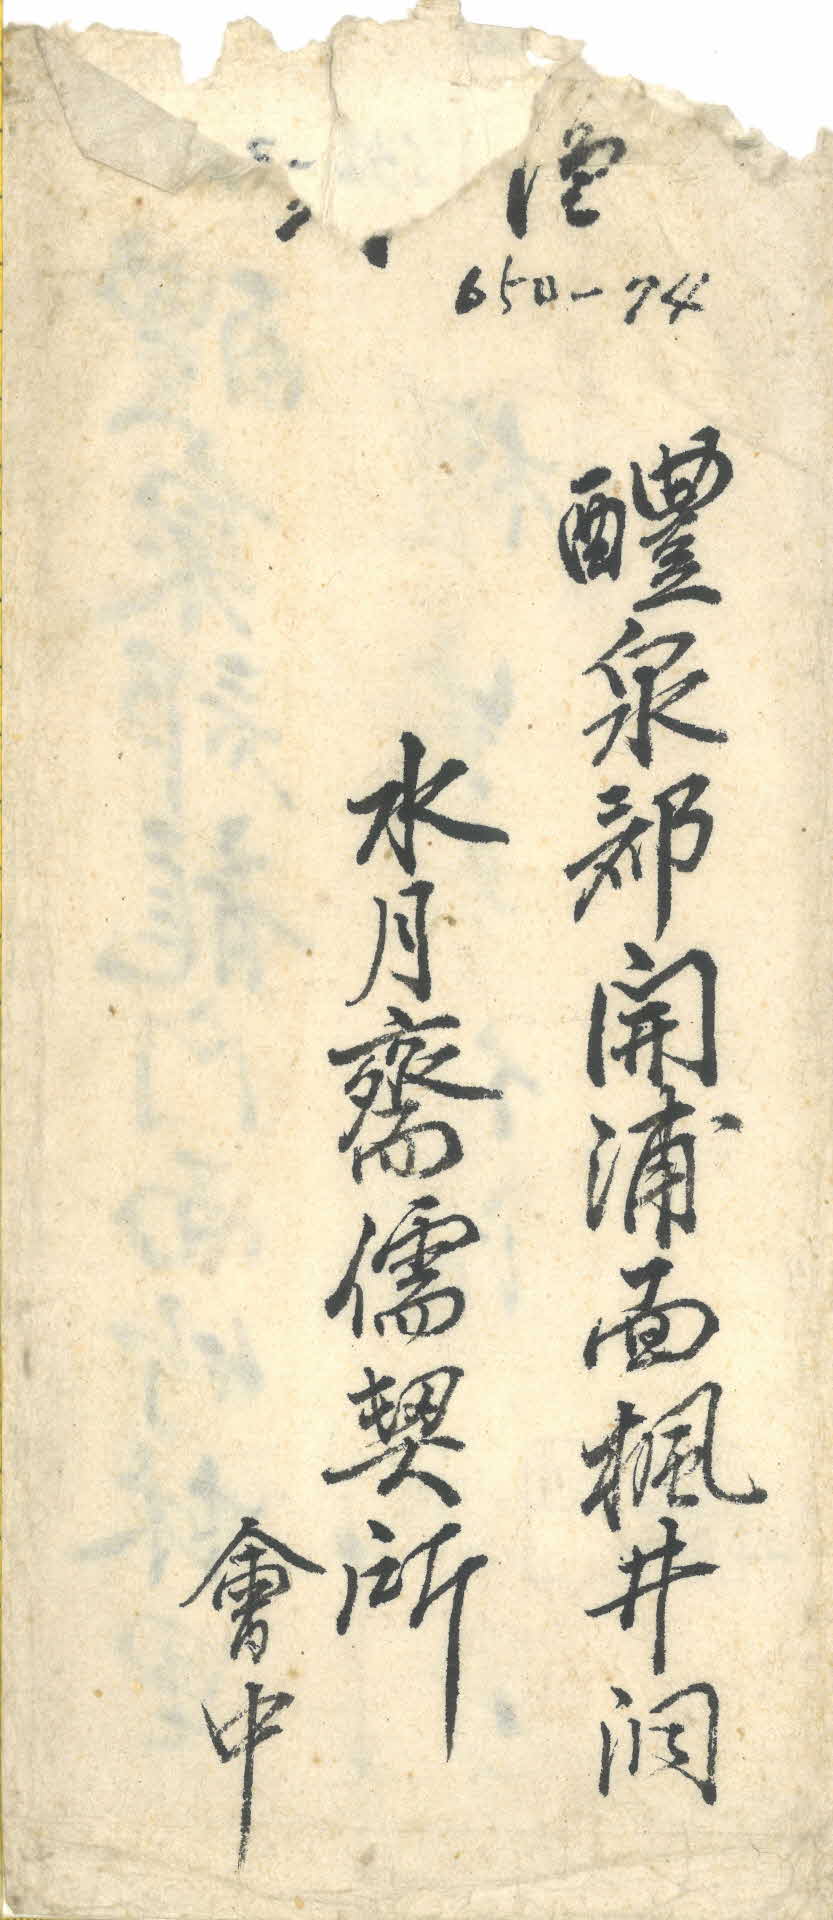 650-74
醴泉郡開浦面楓井洞
水月齋儒契所
會中